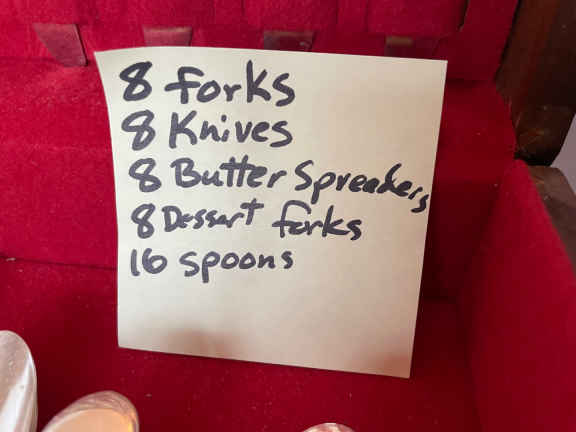 8 forks
8 Knives
8 Butter Spreaders
8 Dessart forks
16 spoons